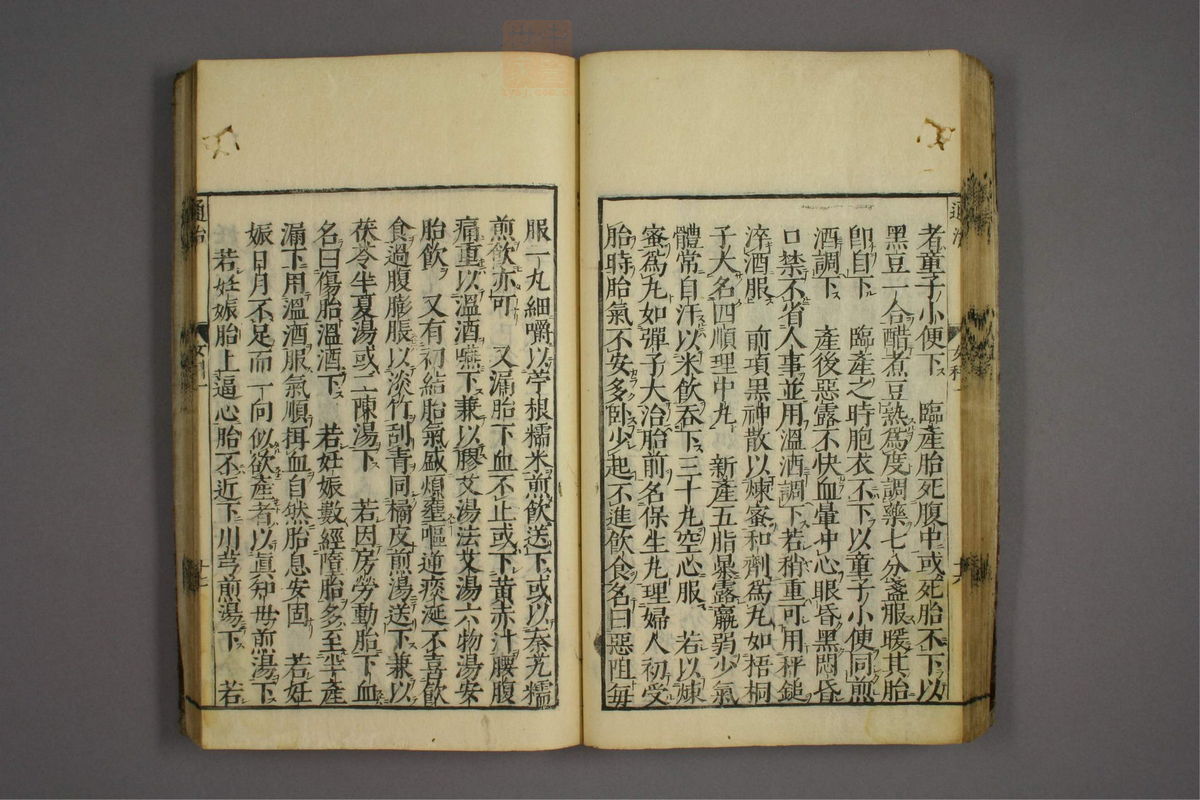 者童子小便下　臨產胎死腹中或死胎不下以
黑豆一合醋煮豆熟爲度調藥七分盞服暖其胎
卽自下　臨產之時胞衣不下以童子小便同煎
酒調下　產後惡露不快血暈中心眼昏黑悶昏
口禁不省人事並用溫酒調下若稍重可用秤鎚
淬酒服　前項黑神散以煉蜜和劑爲丸如梧桐
子大名四順理中丸　新產五脂暴露羸弱少氣
體常自汗以米飲吞下三十丸空心服　若以煉
蜜爲丸如彈子大治胎前名保生丸理婦人初受
胎時胎氣不安多臥少起不進飲食名曰惡阻每
服一丸細嚼以苧根糯米煎飲送下或以秦艽糯
煎飲亦可　又漏胎下血不止或下黄赤汁腰腹
痛重以溫酒嚥下兼以膠艾湯法艾湯六物湯安
胎飲　又有初結胎氣盛煩壅嘔逆痰涎不喜飲
食過腹膨脹以淡竹刮青同橘皮煎湯送下兼以
茯苓半夏湯或二陳湯下　若因房勞動胎下血
名曰傷胎溫酒下　若妊娠數經墮胎多至半產
漏下用溫酒服氣順搑血自然胎息安固　若妊
娠日月不足而丁向似欲產者以眞知母煎湯下
若妊娠胎上逼心胎不近下川芎煎湯下　若
通治
女科一
十六
通治
十七